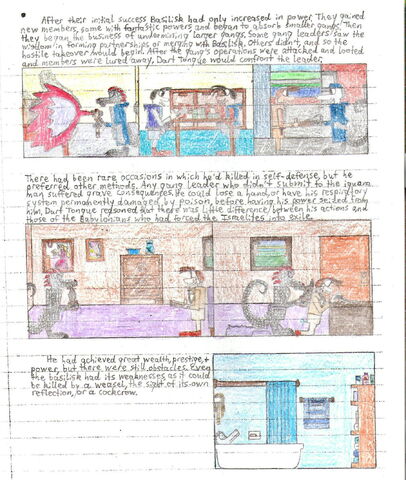 After their initial success Basilisk had only increased in power. They gained
new members, some with fantastic powers and began to absorb smaller gangs. Then
they began the business of undermining larger gangs. Some gang leaders saw the
wisdom in forming partnerships or merging with Basilisk. Others didn't, and so the
hostile takeover would begin. After the gang's operations were attacked and looted
and members were lured away, Dart Tongue would confront the leader.
There had been rare occasions in which he'd killed in self-defense, but he
preferred other methods. Any gang leader who didn't submit to the iguana
man suffered grave consequences. He could lose a hand, or have his respiratory
system permanently damaged by poison, before having his power seized from
him. Dart Tongue reasoned that there was little difference between his actions and
those of the Babylonians who had forced the Israelites into exile.
He had achieved great wealth, prestige, +
power, but there were still obstacles. Even
the basilisk had its weaknesses as it could
be killed by a weasel, the sight of its own
reflection, or a cockcrow.